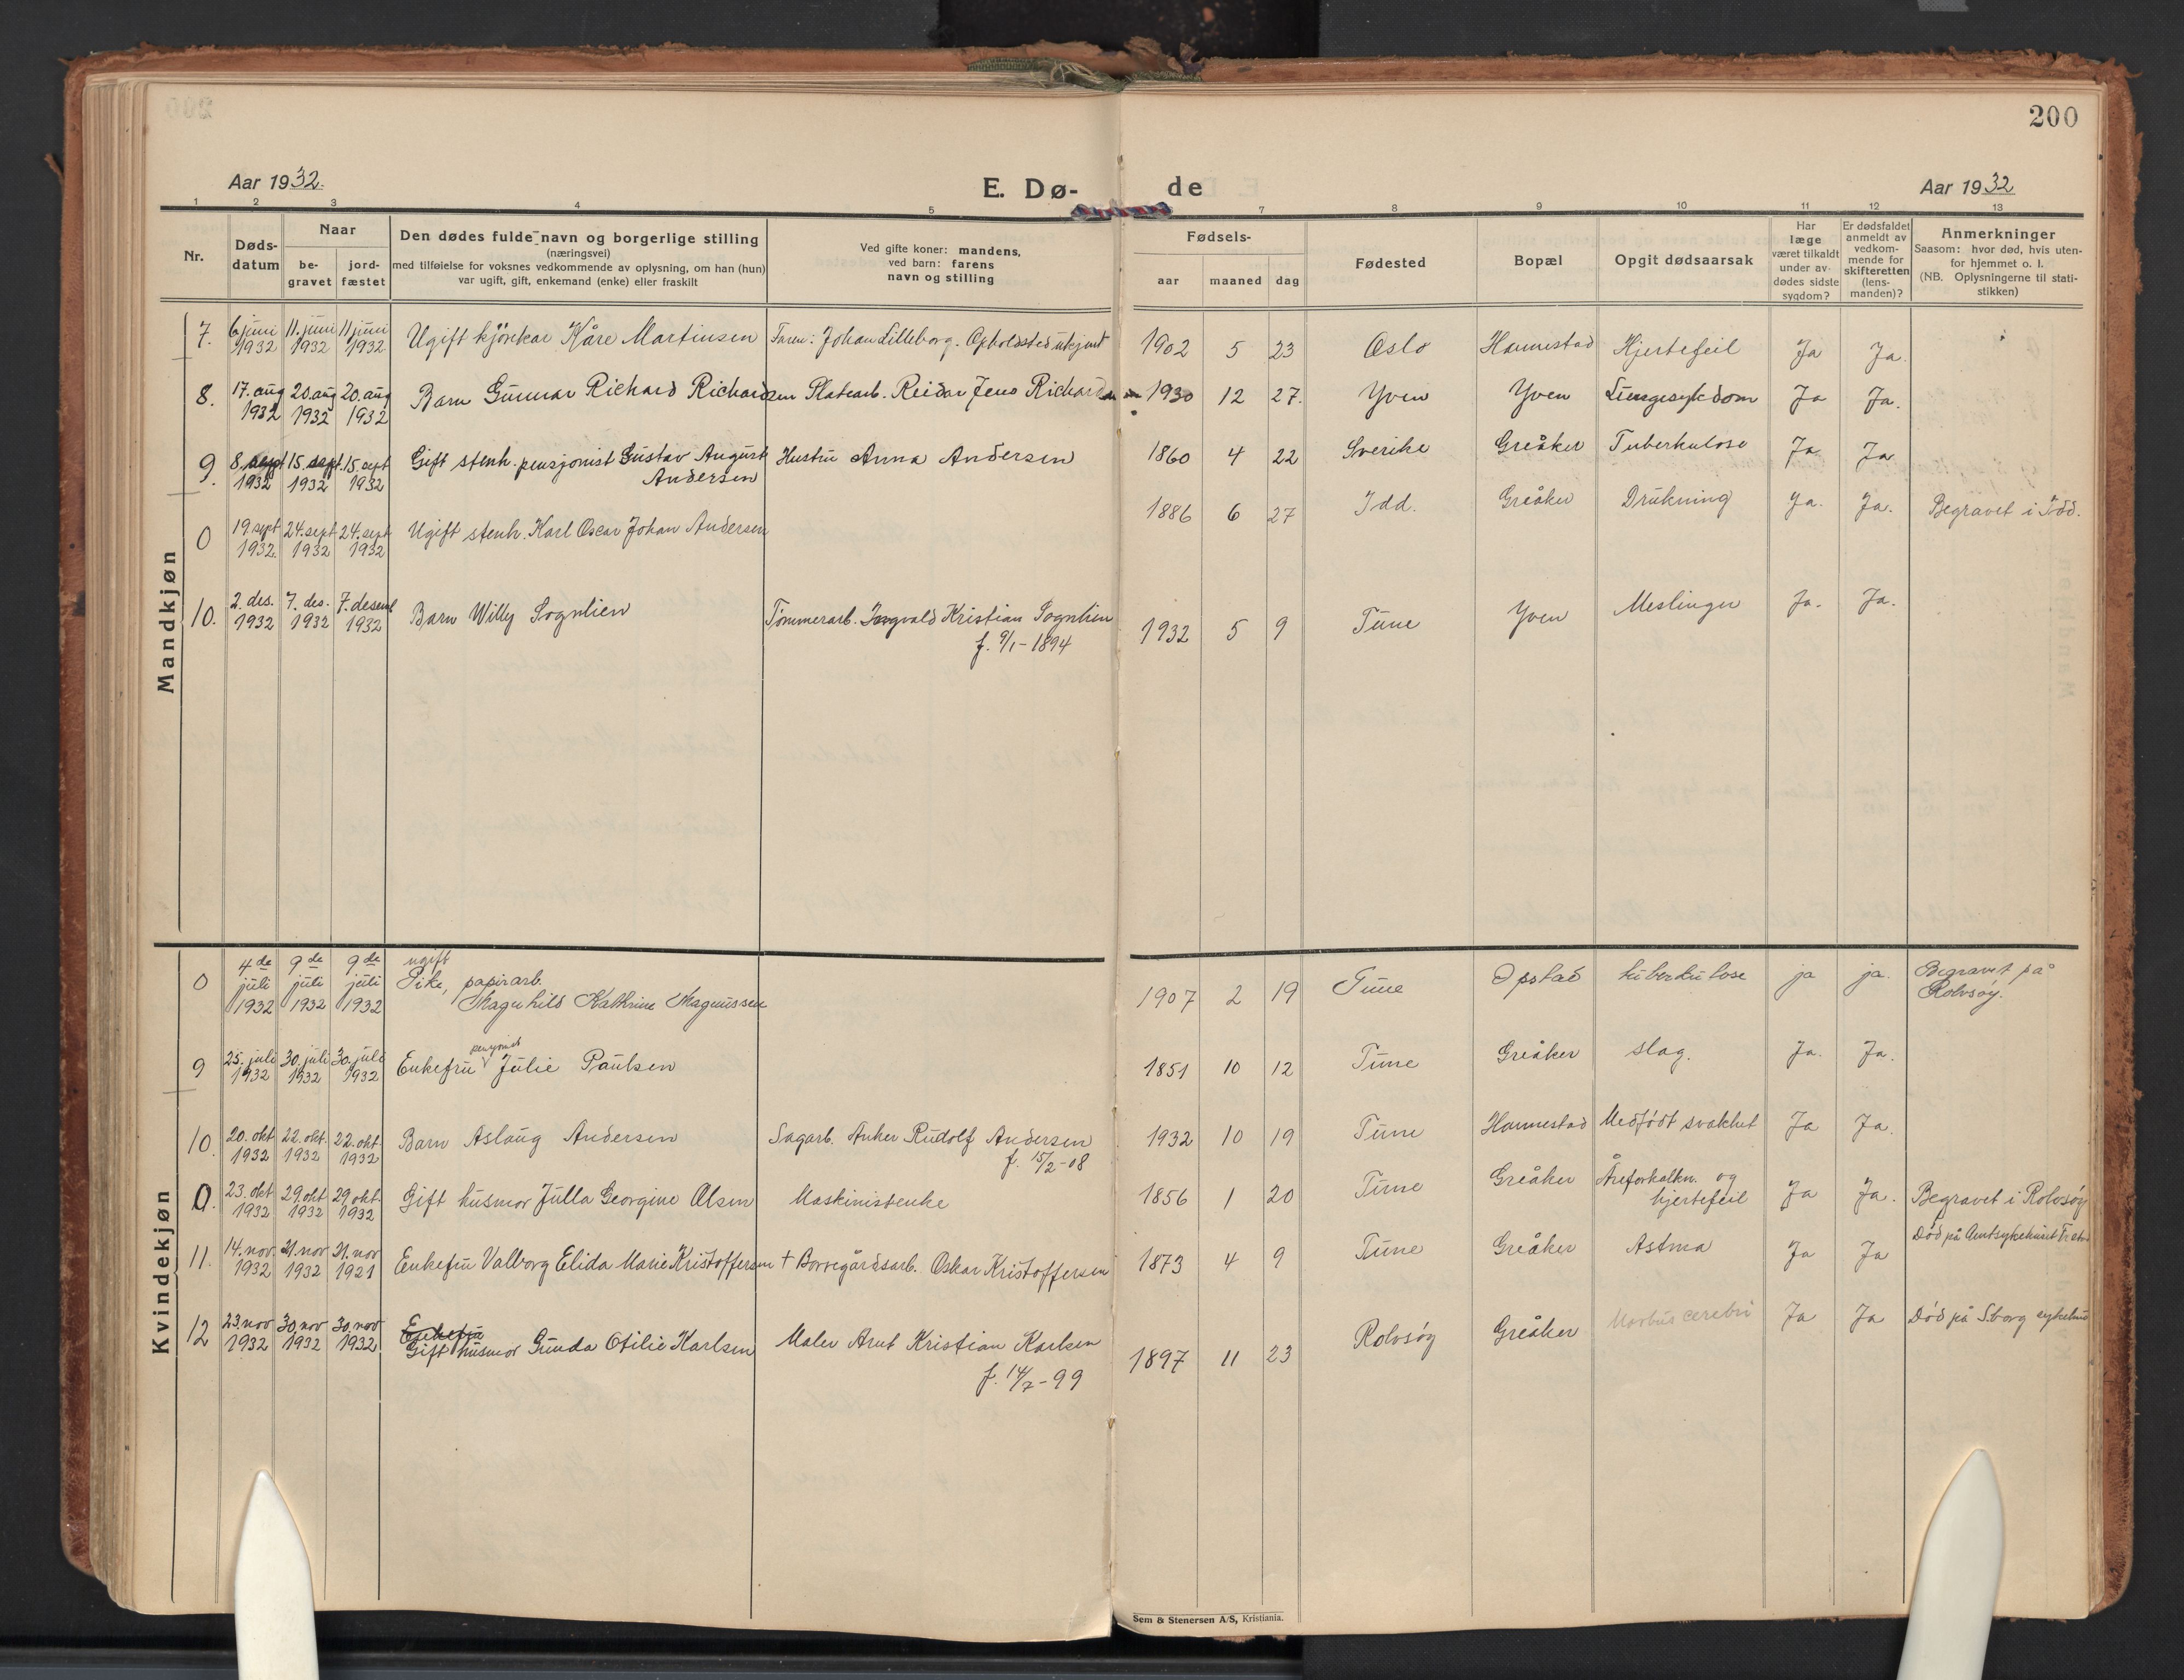 200
Aar 1932.
E. Dø-
de
Aar 1932
1 2 3 4 5 7 8 9 10 11 12 13
Nr.
Døds-
datum
Naar
be-
gravet
jord-
fæstet
Den dødes fulde navn og borgerlige stilling
(næringsvei)
med tilføielse for voksnes vedkommende av oplysning, om han (hun)
var ugift, gift, enkemand (enke) eller fraskilt
Ved gifte koner: mandens,
ved barn: farens
navn og stilling
Fødsels-
aar maaned dag
Fødested
Bopæl
Opgit dødsaarsak
Har
læge
været tilkaldt
under av-
dødes sidste
sygdom?
Er dødsfaldet
anmeldt av
vedkom-
mende for
skifteretten
(lens-
manden)?
Anmerkninger
Saasom: hvor død, hvis uten-
for hjemmet o. l.
(NB. Oplysningerne til stati-
stikken)
Mandkjøn
7. 6 juni 11. juni 11 juni Ugift Kåre Martinsen Faren: Johan Lilleborg. Opholdssted ukjent 1902 5 23 Oslo Hannestad Hjertefeil Ja Ja.
1932 1932 1932
8. 17. aug 20. aug 20. aug Barn Gunnar Richard Richardsen Platearb. Reidar Jens Richardsen 1930 12 27. Yven Yven Lungesykdom Ja Ja.
1932 1932 1932
9. 8 sept 15. sept. 15. sept Gift stenh. pensjonist Gustav August Hustru Anna Andersen 1860 4 22 Sverike Greåker Tuberkulose Ja Ja
1932 1932 1932 Andersen
0 19. sept 24. sept 24. sept Ugift stenh. Karl Oscar Johan Andersen 1886 6 27 Idd. Greåker Drukning Ja. Ja. Begravet i Idd.
1932. 1932 1932
10. 2. des. 7. des. 7. desemb Barn Willy Sognlien Tømmerarb. Ingvald Kristian Sognlien 1932 5 9 Tune Yven Meslinger Ja. Ja.
1932 1932 1932 f. 9/1 - 1894
Kvindekjøn
0 4de 9de 9de ugift
juli juli juli Pike, papirarb. 1907 2 19 Tune Opstad tuberkulose ja ja. Begravet på
1932 1932 1932 Magnhild Kathrine Magnussen Rolvsøy.
9 25. juli 30. juli 30. juli Enkefru pensjonist Julie Paulsen 1851 10 12 Tune Greåker slag. Ja. Ja.
1932 1932 1932
10. 20. okt 22. okt. 22. okt. Barn Aslaug Andersen Sagarb. Anker Rudolf Andersen 1932 10 19 Tune Hannestad Medfødt svakhet Ja Ja.
1932 1932 1932 f. 15/2 - 08
0. 23. okt 29. okt 29 okt. Gift husmor Julla Georgine Olsen Maskinistenke 1856 1 20 Tune Greåker Åreforkalkn. og Ja Ja. Begravet i Rolvsøy
1932 1932 1932 hjertefeil
11. 14. nov. 21. nov 21. nov Enkefru Valborg Elida Marie Kristoffersen + Borregårdsarb. Oskar Kristoffersen 1873 4 9 Tune Greåker Astma Ja Ja Død på Amtsykehuset
1932 1932 1921
12 23. nov 30. nov 30. nov Enkefru
1932 1932 1932 Gift husmor Gunda Otilie Karlsen Maler Arnt Kristian Karlsen 1897 11 23 Rolvsøy Greåker Morbus cerebri Ja Ja Død på S.borg sykehus
f. 14/7 - 99
Sem & Stenersen A/S, Kristiania.